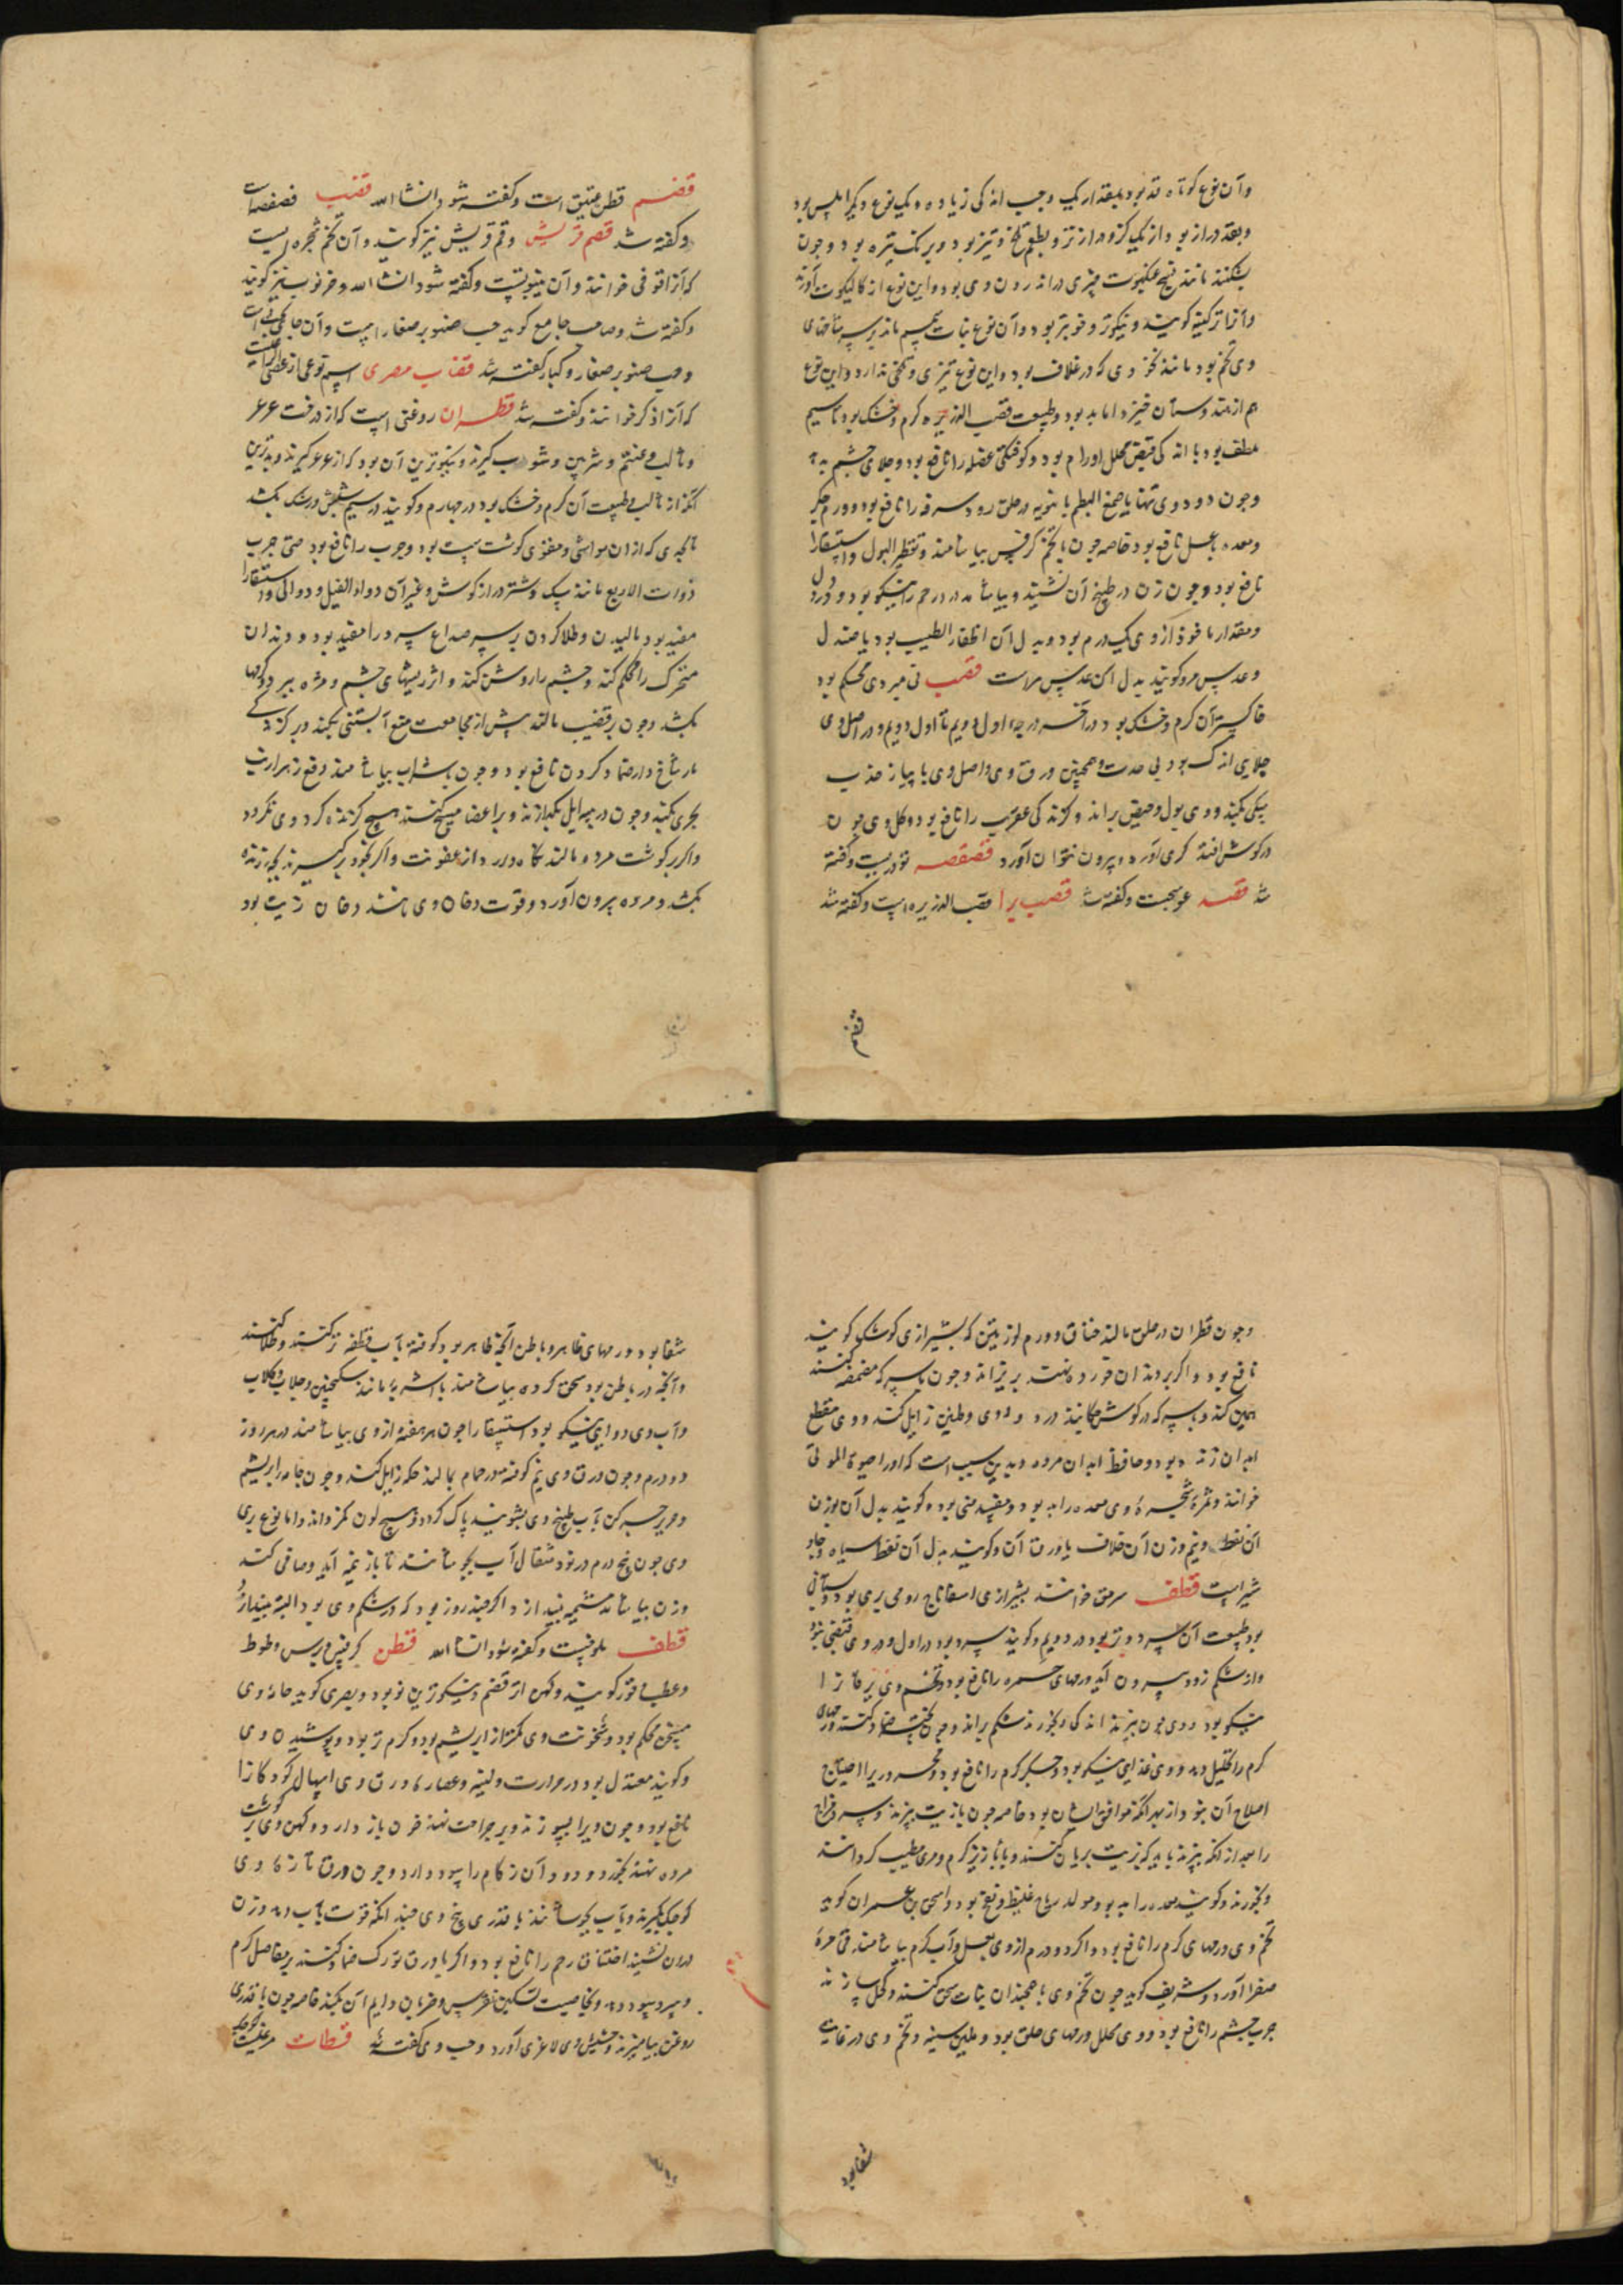 وآن نوع کوتاه قد بود بمقدار یک وجب اندکی زیاده و یک نوع دیگر املس بود
وبقد دراز بود از یک گز دراز تر و بطعم تلخ و تیز بود و برنک تیره بود وجون
بشکنند مانند نسج عنکبوت چیزی در اندرون وی بود و این نوع از کالیکوت آورند
وآنرا ترکینه کویند و نیکوتر و خوبتر بود وآن نوع نبات
وی تخم بود مانند که در غلاف بود واین نوع تیزی و تلخی ندارد واین نوع
هم از هندوستان خیزد اما بد بود وطبیعت قصب الذریره کرم وخشک بود تا سیم
ملطف بود با اندکی قبض محلل اورام بود و کوفتکی عضله را نافع بود وجلای چشم بدهد
وجون دود وی تنها یا صمغ البطم بانبوبه در حلق رود سرفه را نافع بود و ورم جکر
ومعده با عسل نافع بود خاصه جون با تخم کرفس بیاشامند وتقطیر البول واستسقا را
نافع بود وجون زن در طبیخ آن نشیند و بیاشامد درد رحم را نیکو بود و درد دل
ومقدار ماخوذ از وی یک درم بود وبدل آن اظفار الطیب بود یا صندل
وعدس مر وکویند بدل آن عدس مراست قصب نی میردی محکم بود
خاکستر آن کرم وخشک بود در آخر درجه اول دویم تا اول دویم ودر اصل وی
جلایی اندک بود بی حدت و همچنین ورق وی واصل وی با پیاز جذب
پیکان بکند ووی بول وحیض براند وکزندکی عقرب را نافع بود وکل وی جون
در کوش افتد کری آورد وبیرون نتوان آورد قصقصه نوذریست وکفته
شد قصد عوسجست وکفته شد قصب برا قصب الذریره است وکفته شد
قضم
قضم قطن عتیق است وکفته شود انشا الله قضب فصفصه است
وکفته شد قضم قریش وقم قریش نیز کویند وآن تخم شجره ایست
که آنرا قوفی خوانند وآن ینبوتست وکفته شود انشا الله وخرنوب نیز کویند
وکفته شد وصاحب جامع کوید حب صنوبر صغار است
وحب صنوبر صغار و کبار کفته شد قضاب مصری اسم نوعی از
که آنرا ذکر خوانند وکفته شد قطران روغنی است که از درخت عرعر
و شربین کیرند ونیکوترین آن بود که از عرعر کیرند وبدترین
آنکه از وطبیعت آن کرم وخشک بود در جهارم وکویند در سیم شپش ورشک بکشد
تا بحدی که از آن مواشی ومغزی کوشت سست بود وجرب را نافع بود حتی جرب
ذوات الاربع مانند سک وشتر دراز کوش وغیر آن دواء الفیل ودوالی واستسقا را
مفید بود مالیدن وطلا کردن بر سر صداع سرد را مفید بود ودندان
متحرک را محکم کند وچشم را روشن کند واثر ریشهای چشم ومژه ببرد وکرمها
بکشد وجون بر قضیب مالند پیش از مجامعت منع آبستنی بکند وبر کزندکی
مار شاخ دار ضماد کردن نافع بود وجون با شراب بیاشامند دفع زهر ارنب
بحری بکند وجون در پیه ایل بکدازند وبر اعضا مسح کنند هیچ کزنده کرد وی نکردد
واکر بر کوشت مرده مالند نکاه دارد از عفونت واکر بخود برگیرند بچه زنده
بکشد ومرده بیرون آورد وقوت دخان وی مانند دخان زیت بود
وجون قطران در حلق مالند خناق وورم لوزتین که بشیرازی کوشک کویند
نافع بود واکر بر دندان خورده نهند بریزاند وجون با سرکه مضمضه کنند
همین کند وبا سرکه در کوش چکانند درد و دوی وطنین زایل کند ووی مقطع
ابدان زنده بود وحافظ ابدان مرده وبدین سبب است که او را حیوة الموتی
خوانند وثمره شجره وی معده را بد بود ومفسد منی بود وکویند بدل آن بوزن
آن نفط ونیم وزن آن خلاف یا ورق آن وکویند بدل آن نفط سیاه
شیراست قطف سرمق خوانند بشیرازی اسفاناج رومی بری بود وبستانی
بود طبیعت آن سرد وتر بود در دویم وکویند سرد بود در اول ودر وی قبضی نبود
واز شکم زود بیرون آید ورمهای حمره را نافع بود وتخم وی یرقان را
نیکو بود ووی جون بپزند اندکی وبخورند شکم براند وجون ضماد کنند ورمهای
کرم را تحلیل دهد ووی غذایی نیکو بود وجکر کرم را نافع بود ومحروران را احتیاج
اصلاح آن نبود از بهر آنکه موافق ایشان بود خاصه جون با زیت بپزند وسرد مزاج
را بعد از آنکه بپزند باید که بزیت بریان کنند وبابازیر کرم ومری مطیب کردانند
وبخورند وکویند معده را بد بود ومولد ریاح غلیظ ونفخ بود واسحق بن عمران کوید
تخم وی ورمهای کرم را نافع بود واکر دو درم از وی بعسل وآب کرم بیاشامند قی مره
صفرا آورد وشریف کوید جون تخم وی با همچندان نبات سحق کنند وکحل سازند
جرب چشم را نافع بود ووی محلل ورمهای حلق بود وملین سینه وتخم وی در غایت
شفابود
شفا بود ورمهای ظاهر وباطن آنچه ظاهر بود کوفته بآب قطف تر کنند وطلا کنند
وآنچه در باطن بود سحق کرده بیاشامند با اشربه مانند سکنجبین وجلاب وکلاب
وآب وی دوایی نیکو بود استسقا را جون هر هفته از وی بیاشامند در هر روز
دو درم وجون ورق وی نیم کوفته در حمام بمالند حکه زایل کند وجون جامه ابریشم
وحریر بآب طبیخ وی بشویند پاک کردد وهیچ لون نکرداند واما نوع بری
وی جون پنج درم در نود مثقال آب بجوشانند تا باز نیمه آید وصافی کنند
وزن بیاشامد مشیمه بیندازد اکر چند روز بود که در شکم وی بود البته بیندازد
قطف ملوخیست وکفته شود انشا الله قطن کرفس وبرس وطوط
وعطب خوز کویند وکهن آنرا قضم ونیکوترین نو بود وبصری کوید جامه وی
مسخن محکم بود وسخونت وی کمتر از ابریشم بود وکرم تر بود وپوشیدن وی
وکویند معتدل بود در حرارت ولینه وعصاره ورق وی اسهال کودکانرا
نافع بود وجون ویرا بسوزند وبر جراحت نهند خون باز دارد وکهن وی بر کوشت
مرده نهند بخورد ودود آن زکام را سود دارد وجون ورق تازه وی
کوچک بکیرند وبآب بجوشانند با قدری بیخ وی چند آنکه قوت بآب دهد وزن
در آن نشیند اختناق رحم را نافع بود واکر با ورق تورک ضماد کنند بر مفاصل کرم
وسرد سود دهد وبخاصیت تسکین نقرس وضربان وایم آن بکند خاصه جون با قدری
روغن بیامیزند وحشیش وی لاغری آورد وحب وی کفته شد قطات مرغیست